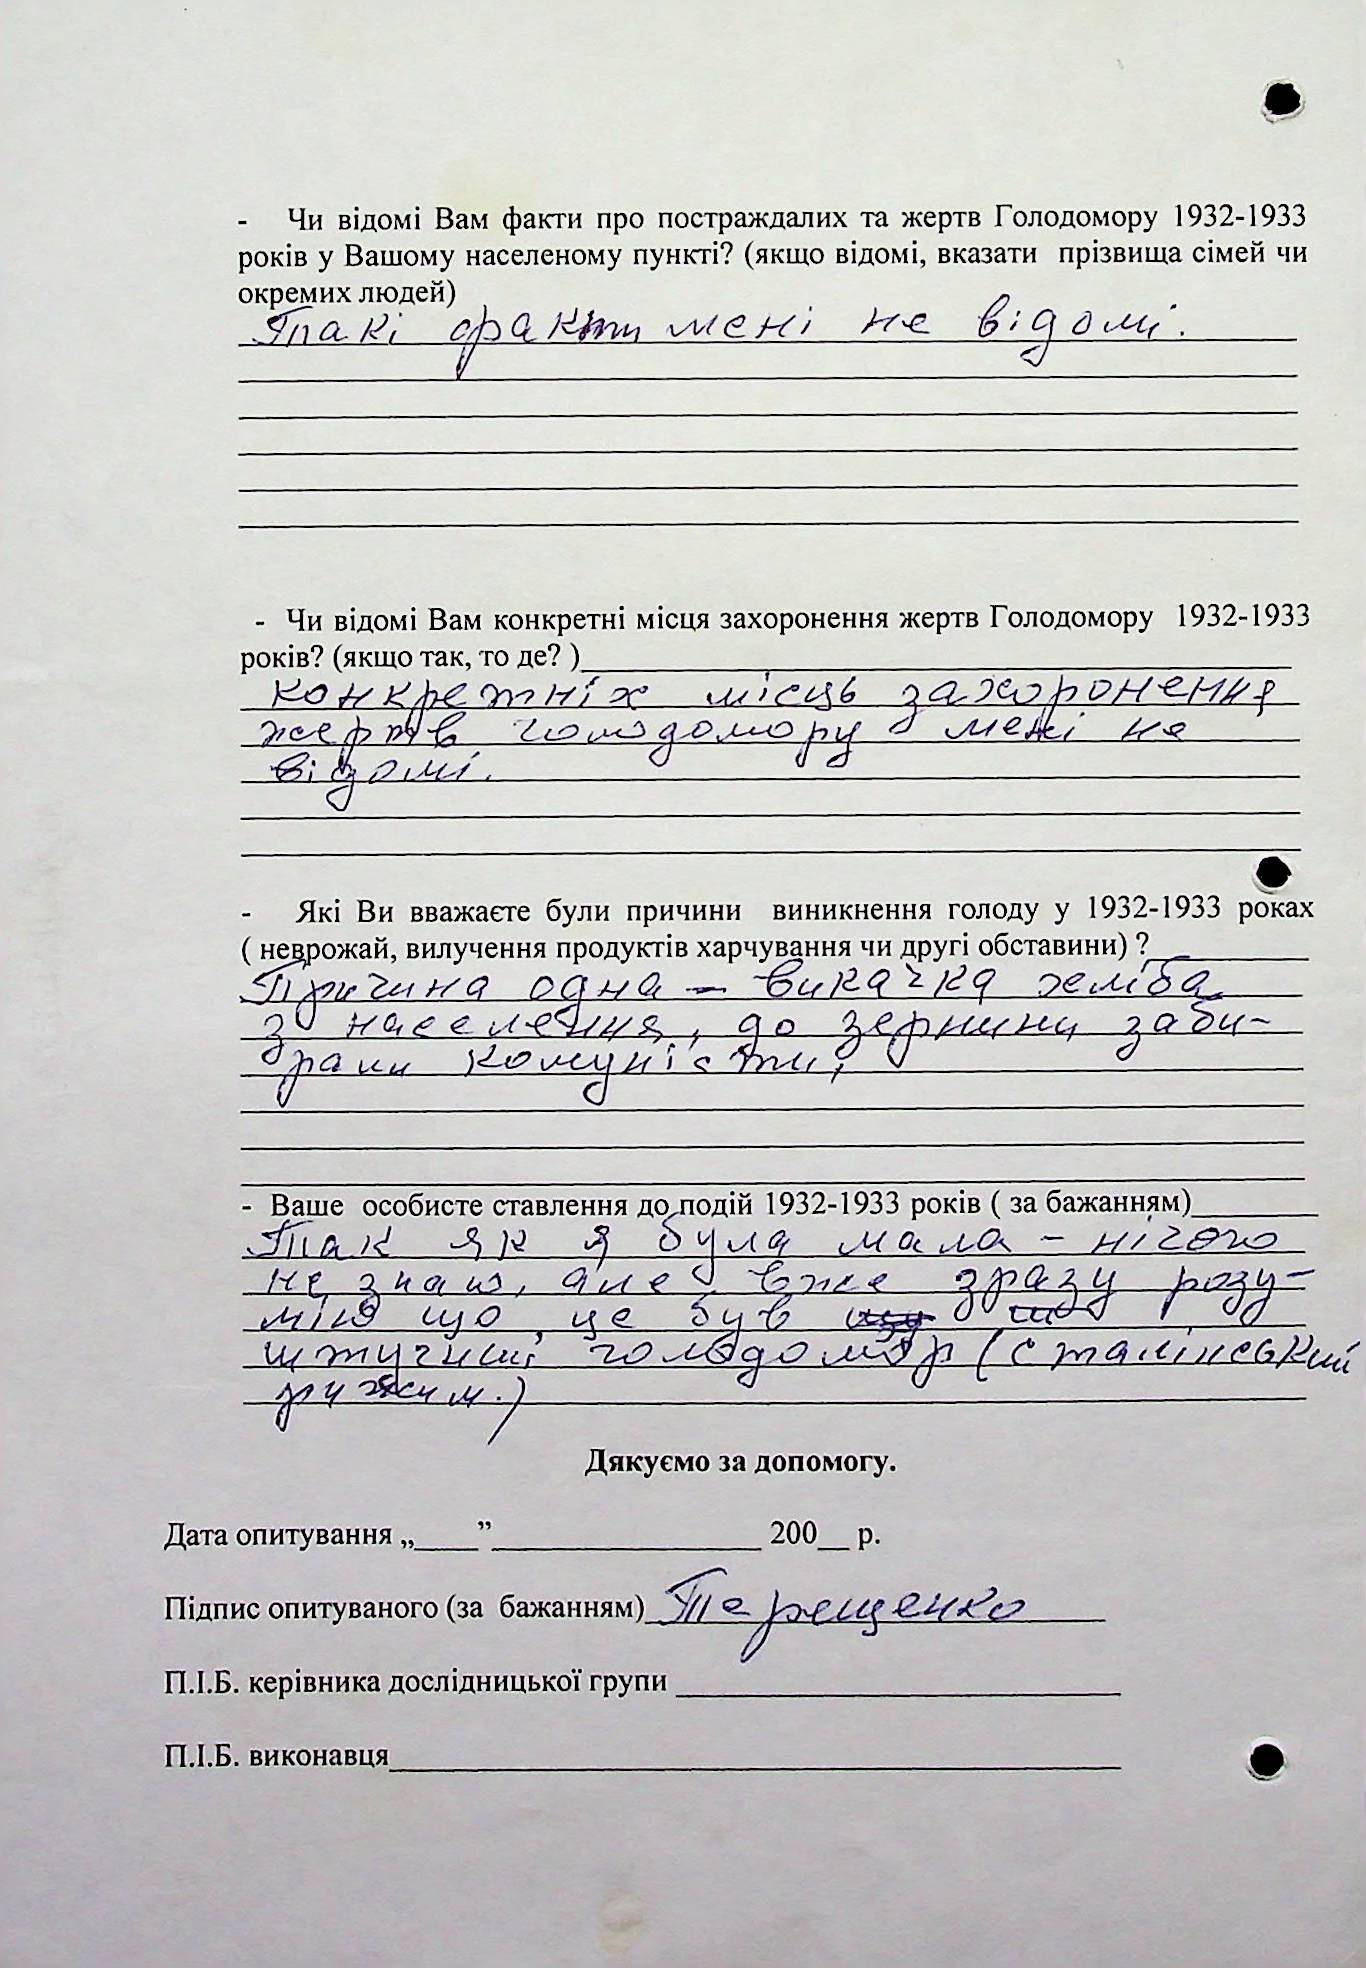 - Чи відомі Вам факти про постраждалих та жертв Голодомору 1932-1933
років у Вашому населеному пункті? (якщо відомі, вказати прізвища сімей чи
окремих людей)
Такі факти мені не відомі.
- Чи відомі Вам конкретні місця захоронення жертв Голодомору 1932-1933
років? (якщо так, то де? )
конкретніх місць захоронення
жертв голодомору мені не
відомі.
- Які Ви вважаєте були причини виникнення голоду у 1932-1933 роках
( неврожай, вилучення продуктів харчування чи другі обставини) ?
Причина одна – викачка хліба
з населення, до зернини заби-
рали комуністи,
- Ваше особисте ставлення до подій 1932-1933 років ( за бажанням)
Так як я була мала – нічого
не знаю, але вже зразу розу-
мію що, це був
штучний голодомор (сталінський
рижим.)
Дякуємо за допомогу.
Дата опитування „____”_________________ 200__ р.
Підпис опитуваного (за бажанням) Терещенко
П.І.Б. керівника дослідницької групи
П.І.Б. виконавця